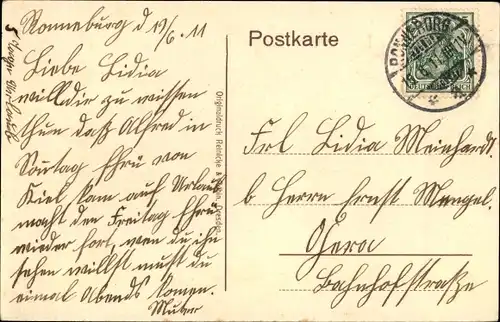 Ronneburg d 19/6. 11
Liebe Lidia
will dir zu wissen
thun daß Alfred in
Sontag Früh von
Kiel kam auf Urlaub
macht den Freitag Früh
wieder fort, wen du ihn
sehen willst must du
einmal Abends komen.
Mutter
Originaldruck Reinicke & Dresden.
Postkarte
RONNEBURG
DEUTSCHES REICH
Frl Lidia Meinhardt.
b. Herrn Ernst Mengel.
Gera
Bahnhofstraße